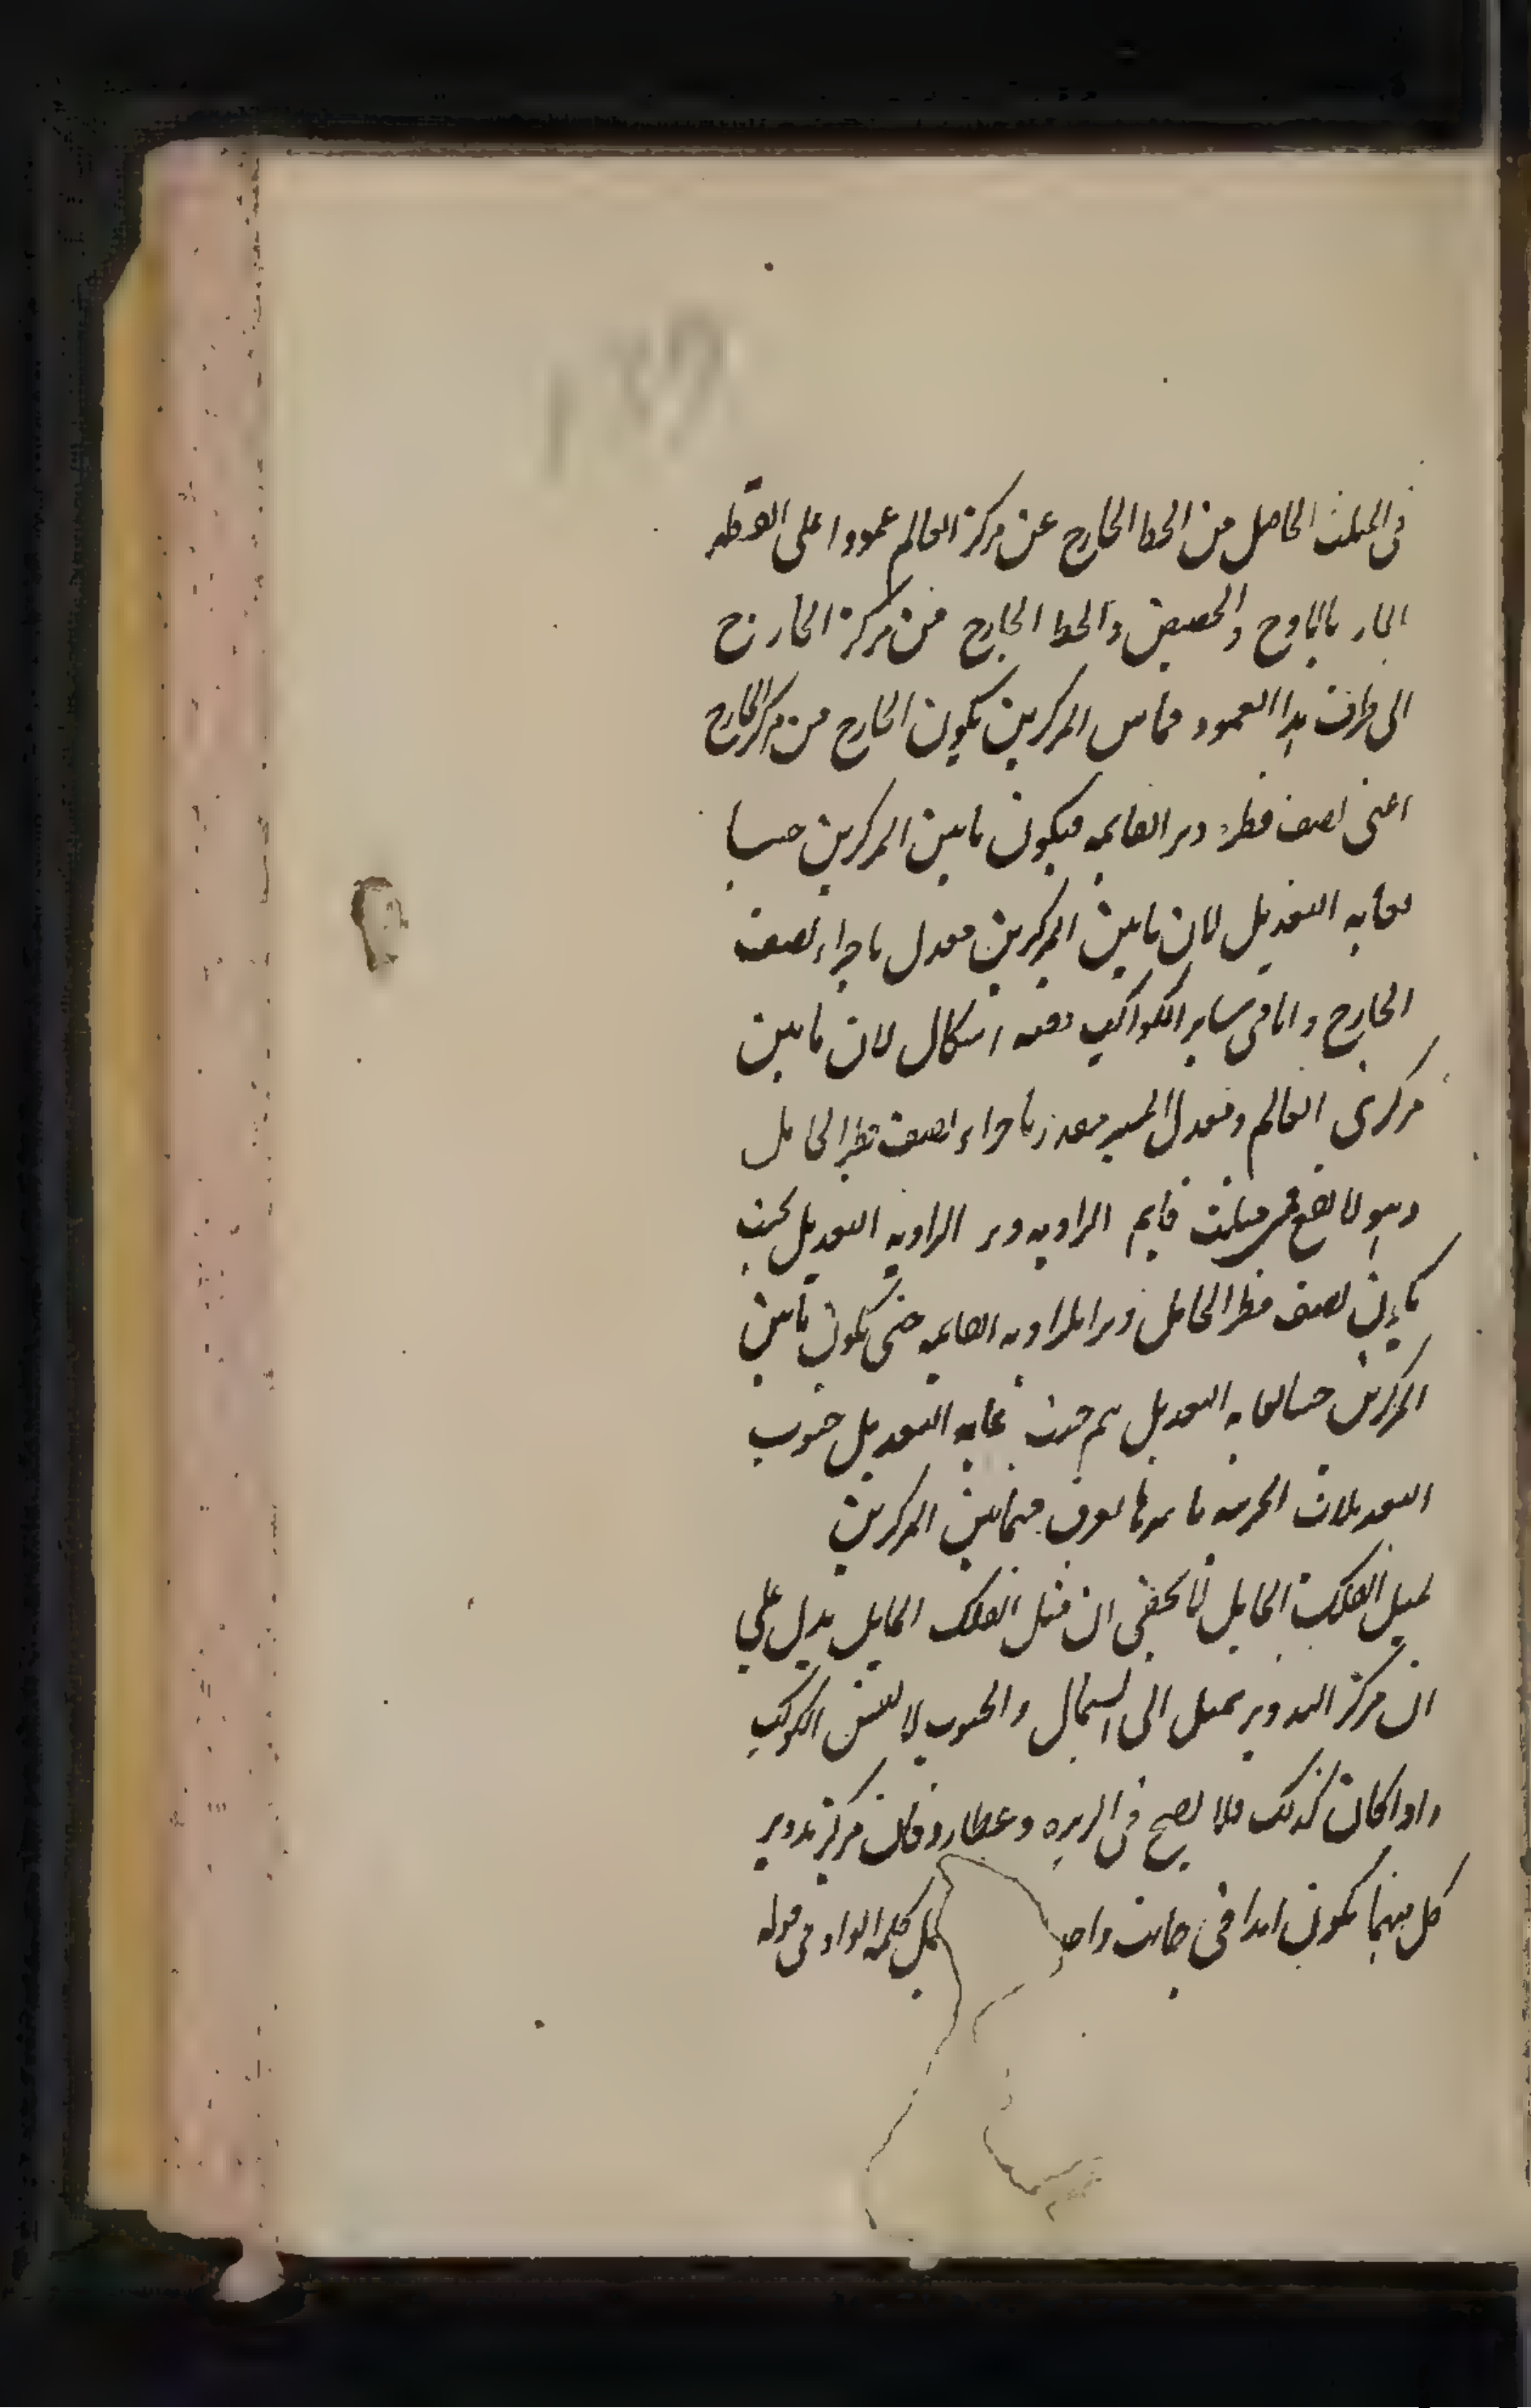 فى المثلث الحاصل من الخط الخارج عن مركز العالم عمودا على القطر
المار بالاوج والحضيض والخط الخارج من مركز الخارج
الى طرف هذا العمود وما بين المركزين يكون الخارج من مركز الخارج
اعنى نصف قطره وتر القايمه فيكون ما بين المركزين جيبا
لغايه التعديل لان ما بين المركزين معدل باجزاء نصف
الخارج واما فى ساير الكواكب ففيه اشكال لان ما بين
مركزى العالم ومعدل المسير مقدر باجزاء نصف قطر الحامل
وهو لا يقع فى مثلث قايم الزاويه وتر الزاويه التعديل بحيث
يكون نصف قطر الحامل وتر الزاويه القايمه حتى يكون ما بين
المركزين جيبا لغايه التعديل ثم من غايه التعديل جيوب
التعديلات الجزئيه باسرها يعرف فيما بين المركزين
لميل الفلك المايل لا يخفى ان ميل الفلك المايل يدل على
ان مركز التدوير يميل الى الشمال والجنوب لا نفس الكوكب
واذا كان كذلك فلا يصح فى الزهره وعطارد فان مركز تدوير
كل منهما يكون ابدا فى جانب واحد كلمه الواو فى قوله